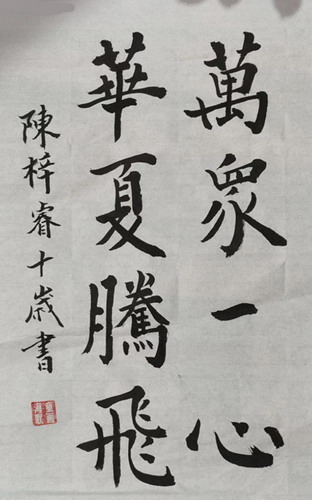 萬眾一心
華夏騰飛
陳梓睿十歲書